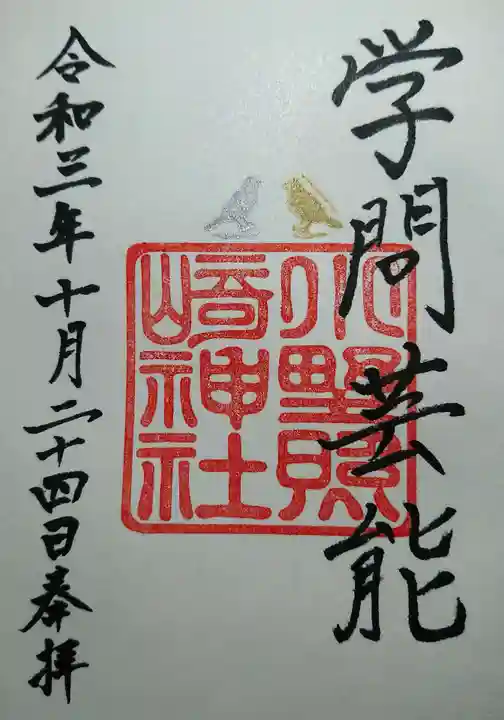 学問芸能
小野照
崎神社
令和三年十月二十四日奉拝